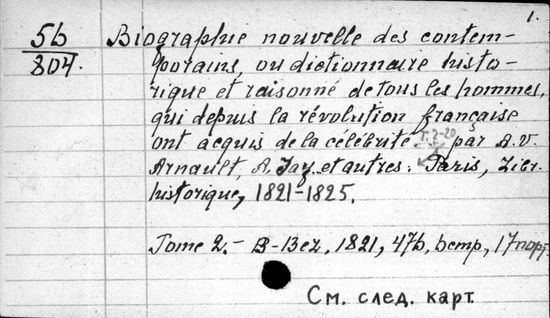 1.
5b
804.
Biographie nouvelle des contem-
porains, ou dictionnaire histo-
rique et raisonné de tous les hommes,
qui depuis la révolution française
ont acquis de la célébrité. T. 2-20 par A.V.
Arnault, A. Jay et autres. Paris, Libr.
historique, 1821-1825.
Tome 2. - B-Bez, 1821, 476, 17 порт
См. след. карт